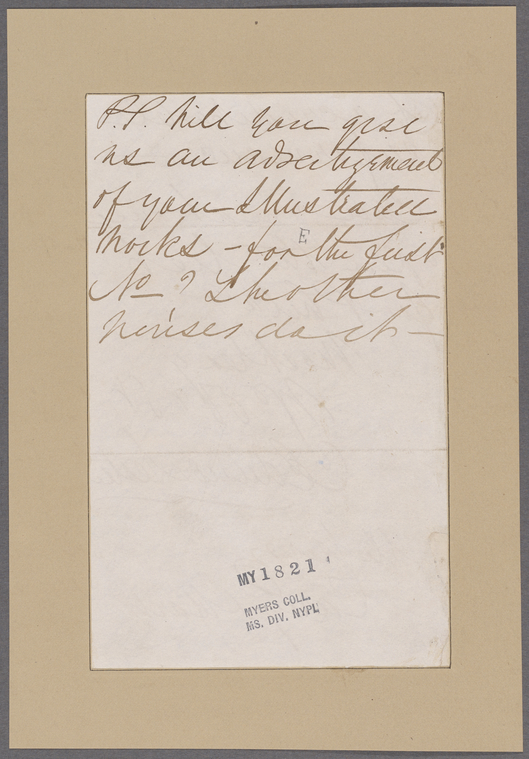 P.S. Will you give
us an advertizement
of your Illustrated
Works - for the first
E
No - ? The other
houses do it -
MY1821
MYERS COLL.
MS. DIV. NYPL